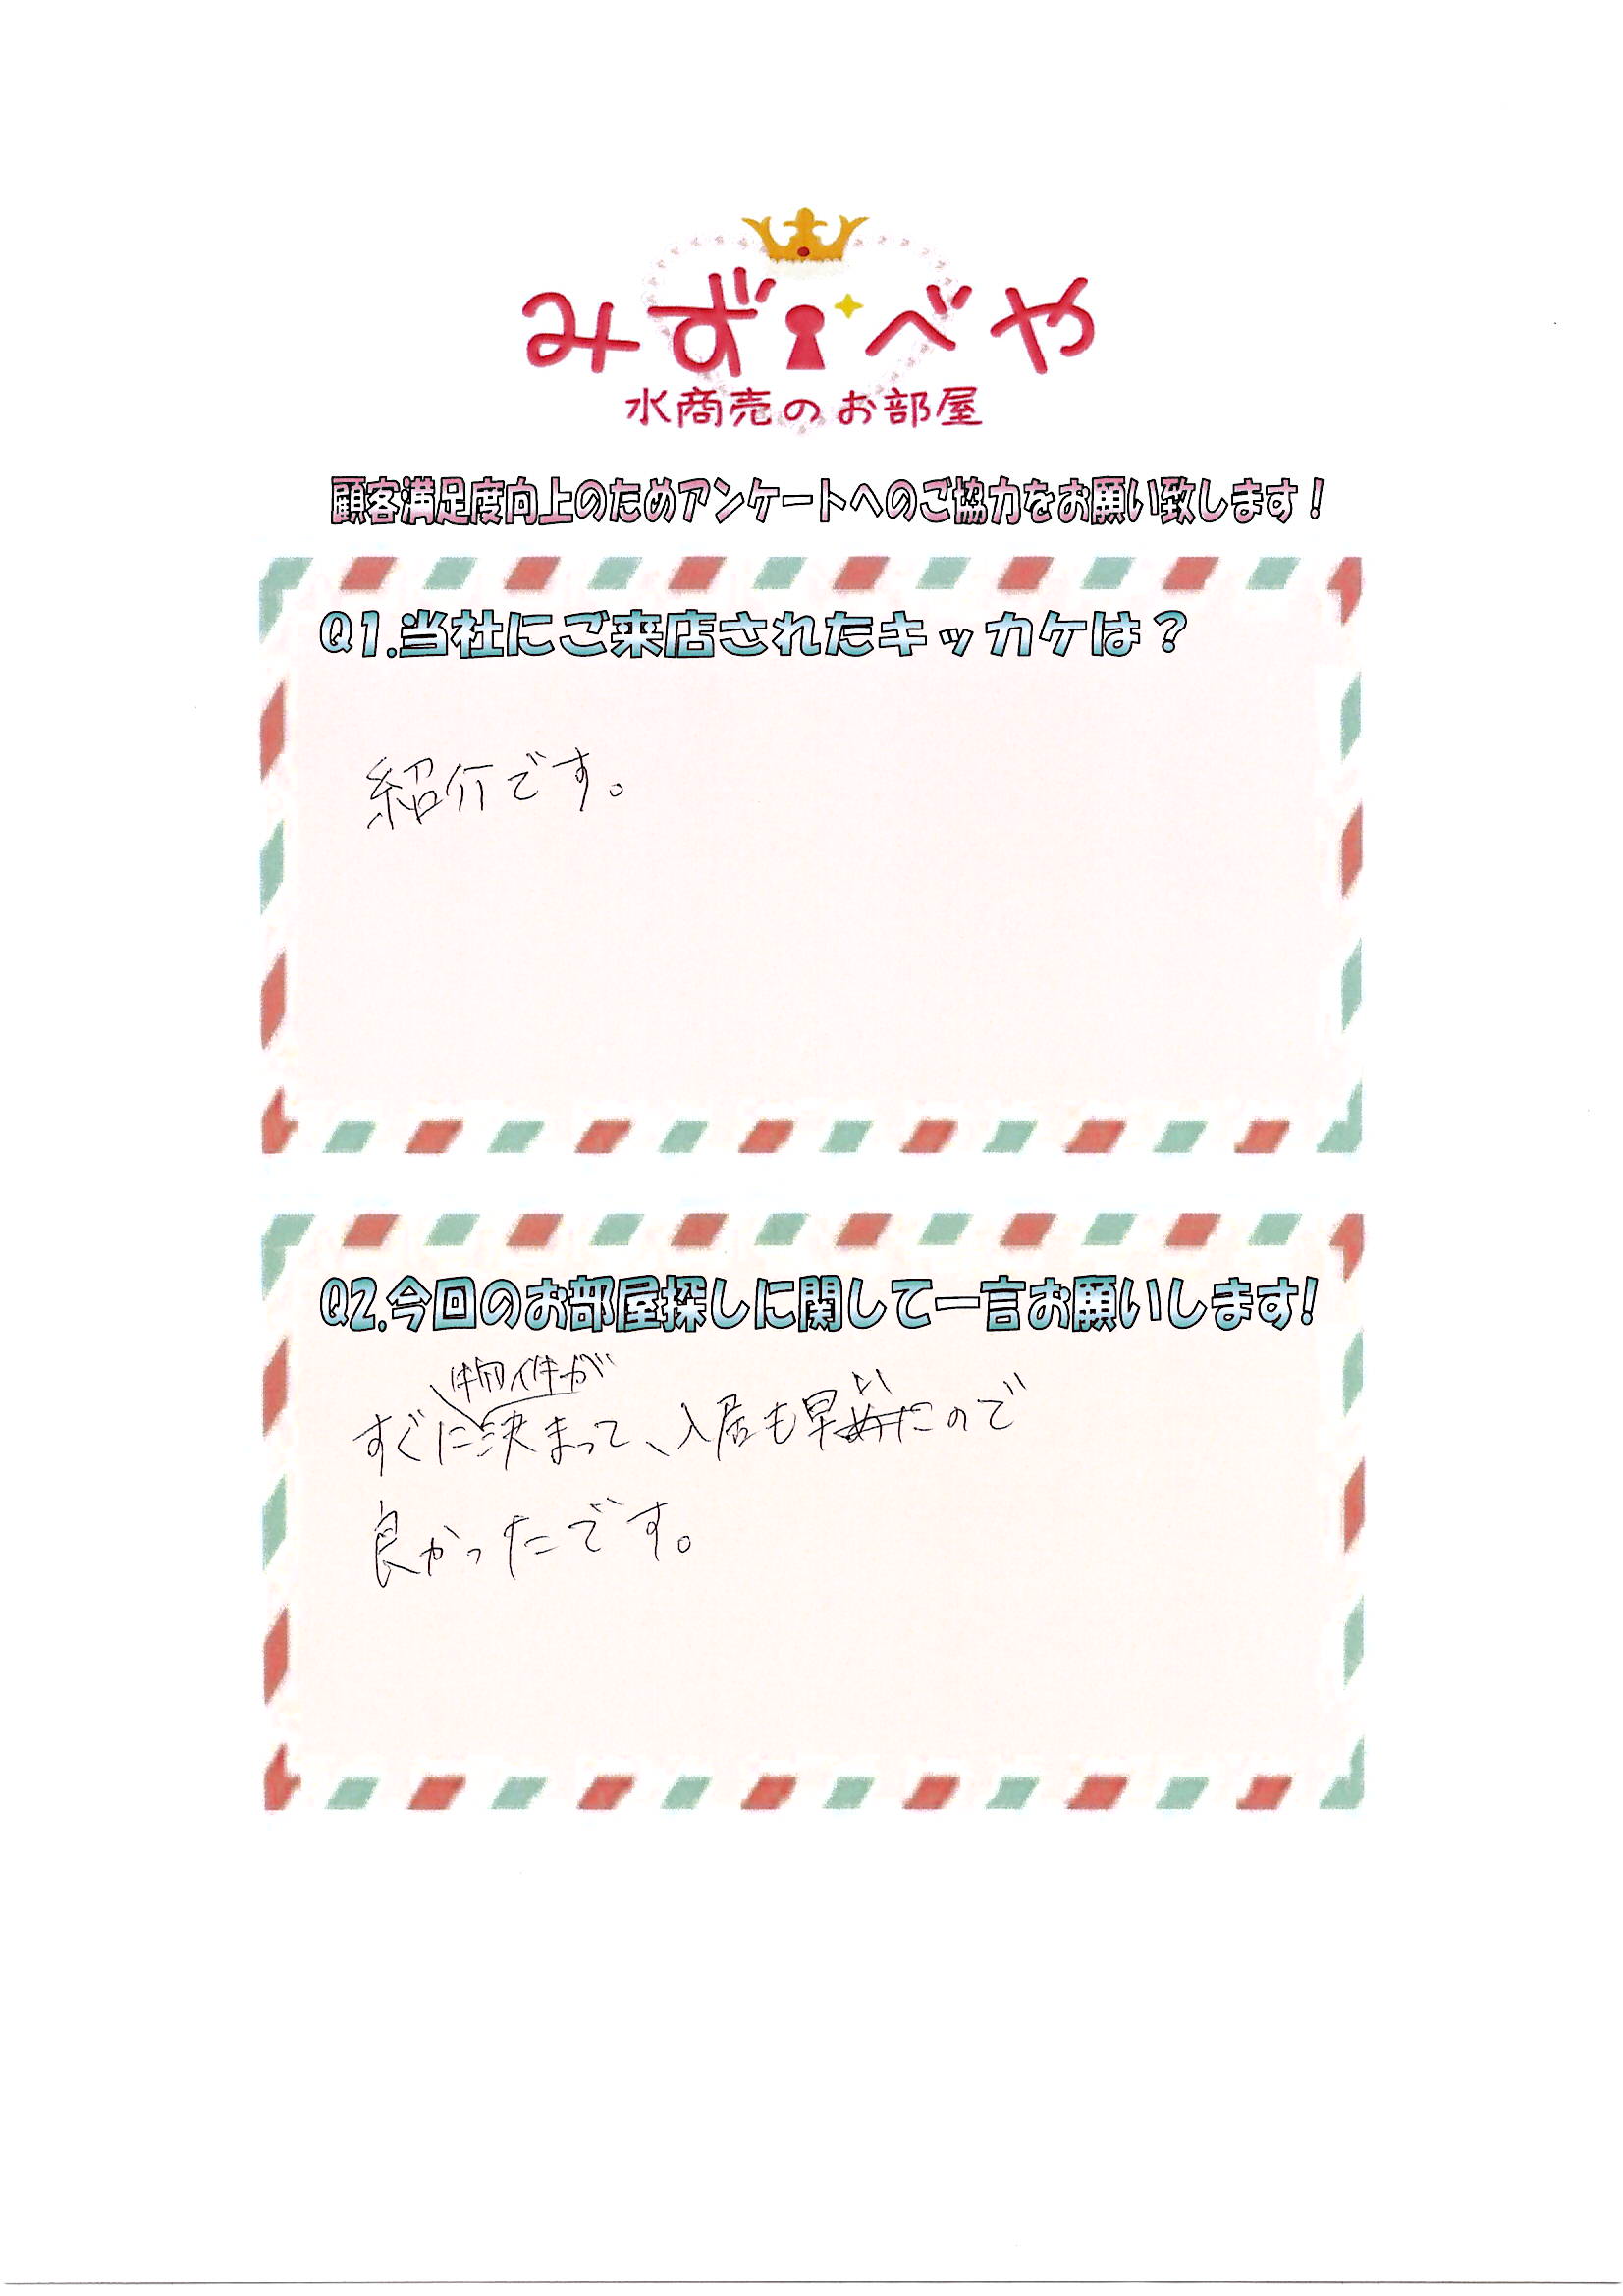 みずべや
水商売のお部屋
顧客満足度向上のためアンケートへのご協力をお願い致します!
Q1.当社にご来店されたキッカケは?
紹介です。
Q2.今回のお部屋探しに関して一言お願いします!
物件が
すぐに決まって、入居も早いので
良かったです。